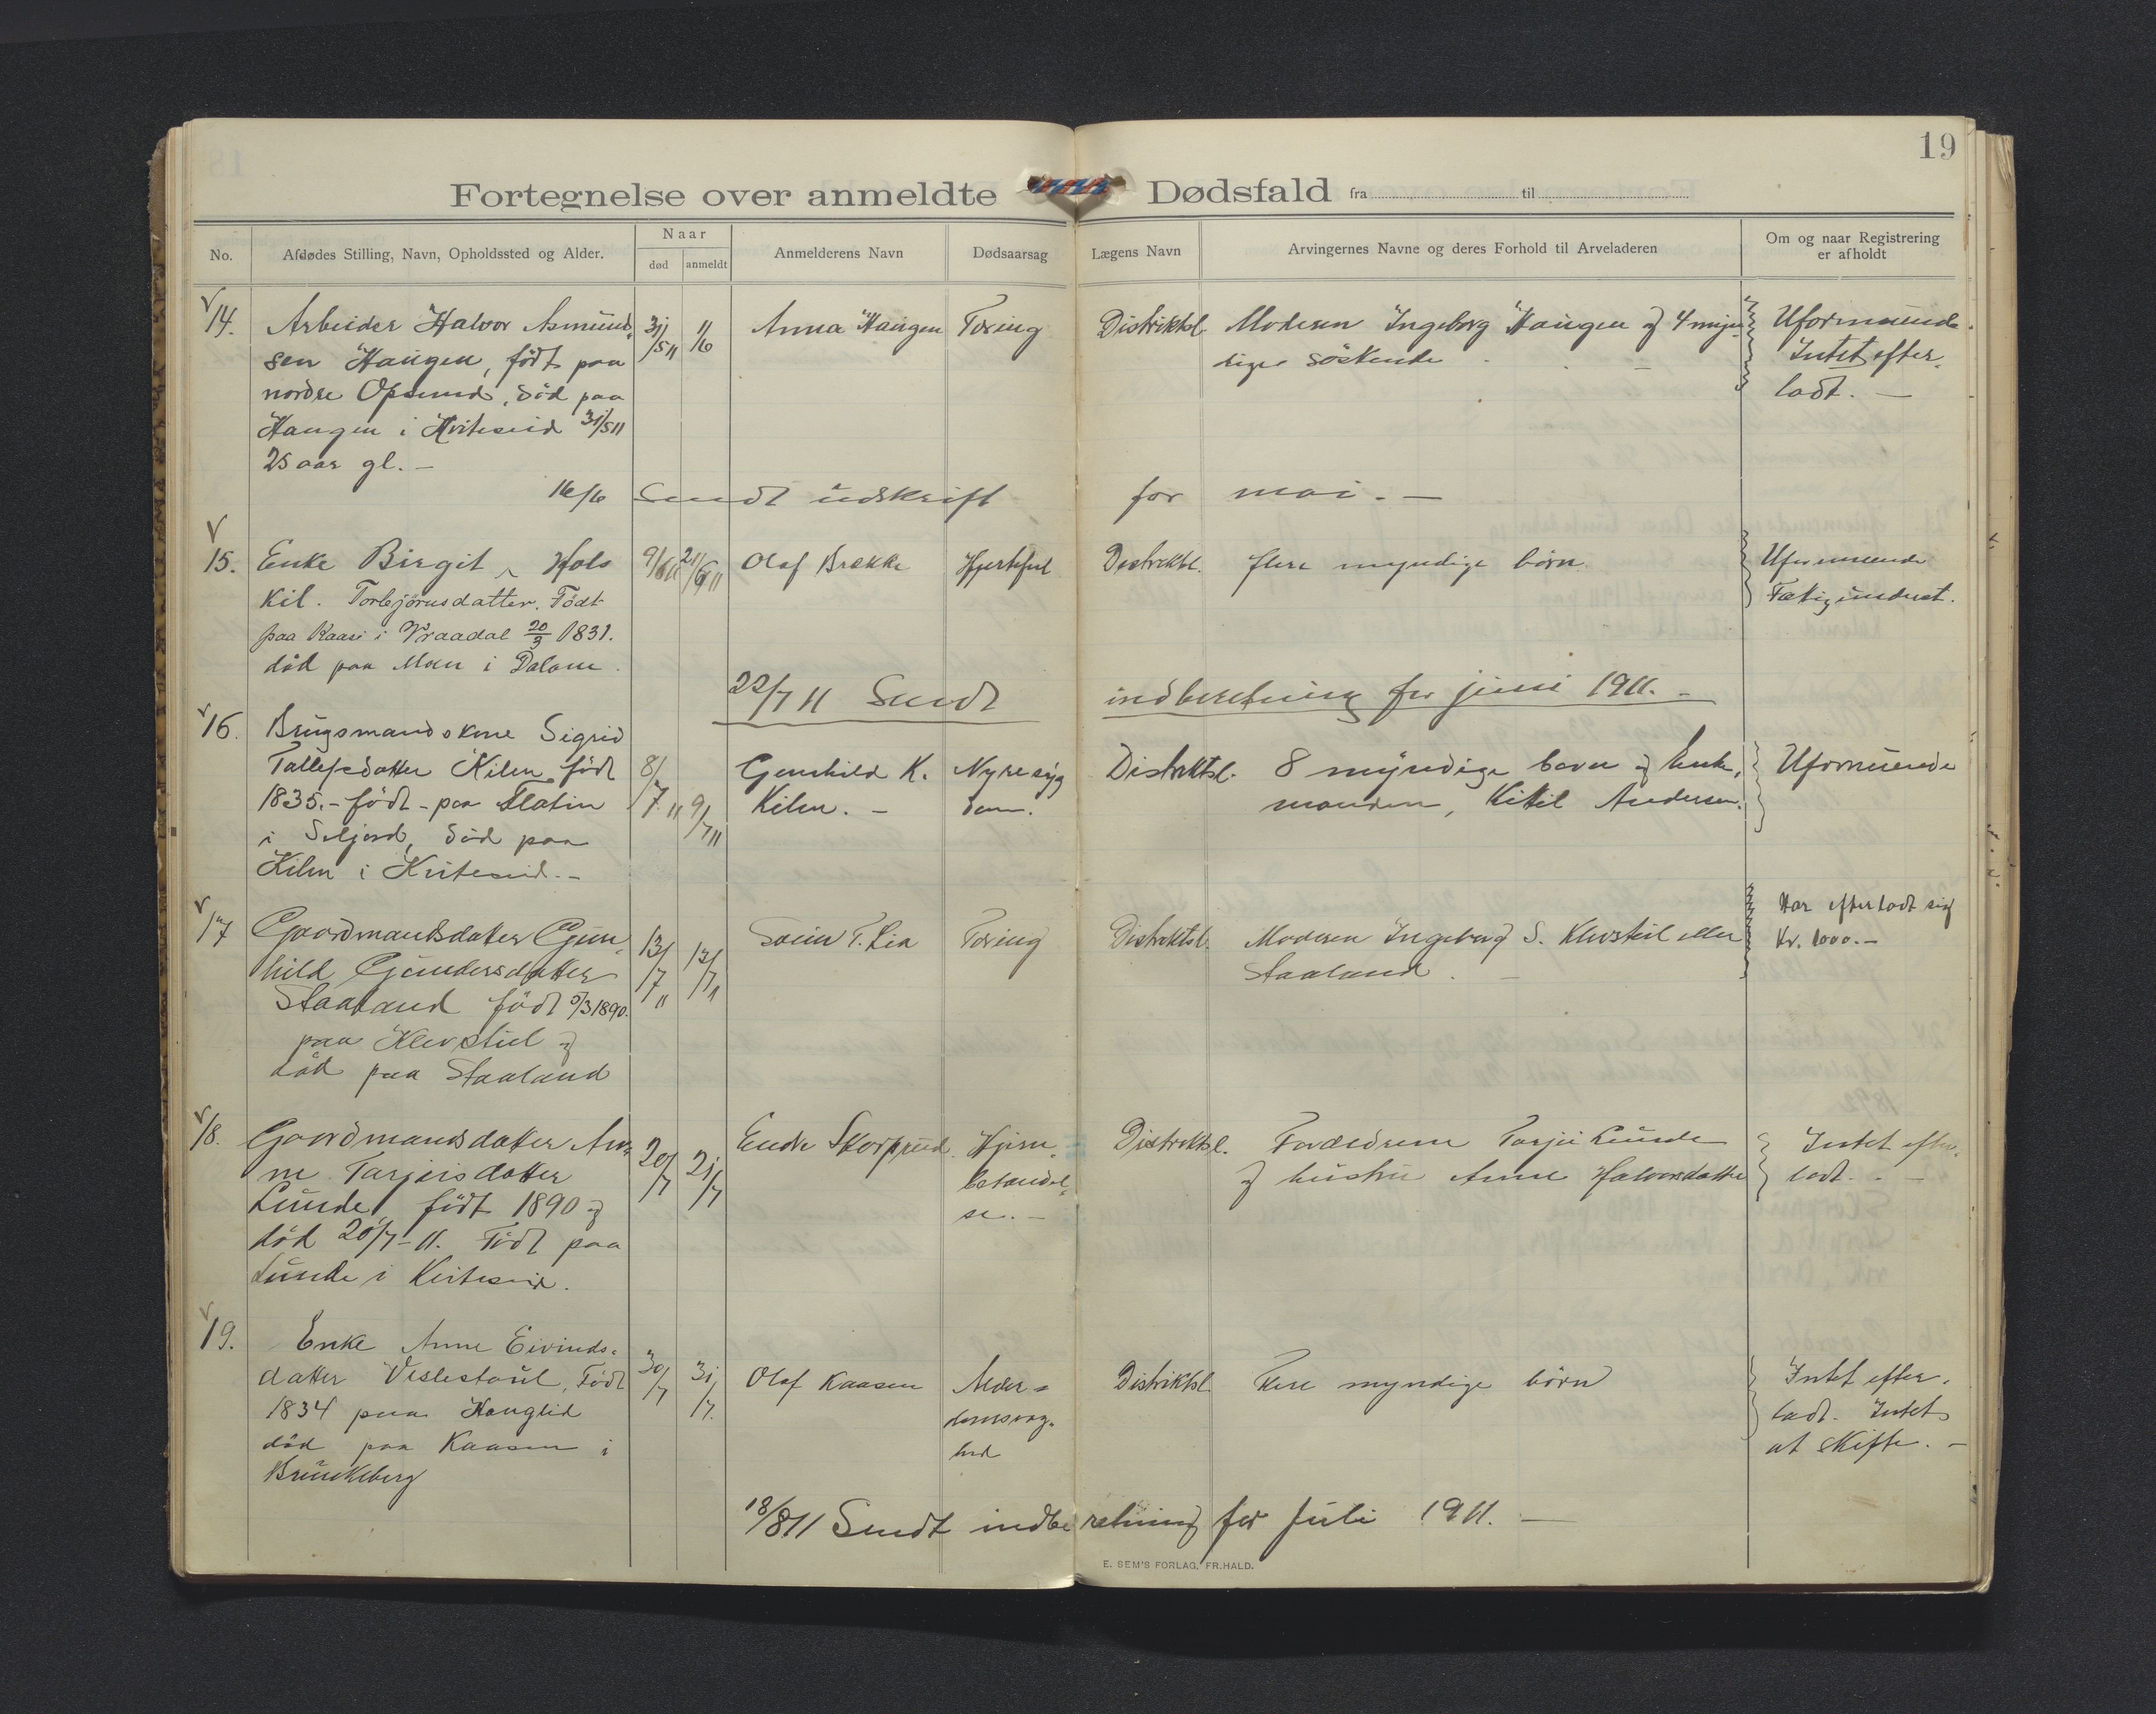 19
Fortegnelse over anmeldte Dødsfald fra til
No.
Afdødes Stilling, Navn, Opholdssted og Alder.
Naar
død anmeldt
Anmelderens Navn
Dødsaarsag
Lægens Navn
Arvingernes Navne og deres Forhold til Arveladeren
Om og naar Registrering
er afholdt
14.
Arbeider Halvor Asmund-
sen Haugen, født paa
nordre Opsund, død paa
Haugen i Kviteseid 31/5 11
25 aar gl. —
31/5 11
1/6
Anna Haugen
Tæring
Distriktsl.
Moderen Ingeborg Haugen og 4 myn-
dige søskende
Uformuende.
Intet efter-
ladt. —
16/6 Sendt udskrift for mai. —
15.
Enke Birgit Hols
Kil. Torbjørnsdatter. Født
paa Kaasi i Vraadal 20/3 1831.
død paa Moen i Dalane.
9/6 11
21/6 11
Olaf Brække
Hjertefeil
Distriktsl.
flere myndige børn
Uformuende
Fattigunderst.
22/7 11 Sendt indberetning for juni 1911. —
16.
Brugsmandskone Sigrid
Tallefsdatter Kilen født
1835. - født - paa Slatin
i Seljord, død paa
Kilen i Kviteseid. —
8/7 11
9/7 11
Gunhild K.
Kilen. —
Nyresyg
dom.
Distriktsl.
8 myndige børn og Enke-
manden, Kittil Andersen.
Uformuende
17
Gaardmandsdatter Gun-
hild Gundersdatter
Staaland født 5/3 1890.
paa Klevstul og
død paa Staaland
13/7 11
13/7 11
Svein T. Lia
Tæring
Distriktsl.
Moderen Ingeborg S. Klevstul eller
Staaland. —
Har efterladt sig
Kr. 1000. —
18.
Gaardmandsdatter An-
ne Tarjeisdatter
Lunde født 1890 og
død 20/7 - 11. Født paa
Lunde i Kviteseid.
20/7
21/7
Endre Skorpeed
Hjerne-
betændel-
se. —
Distriktsl.
Forældrene Tarjei Lunde
og hustru Anne Halvorsdatter
Intet efter-
ladt. —
19.
Enke Anne Eivinds-
datter Veslestaul, Født
1834 paa Hauglid
død paa Kaasen i
Brunkeberg
30/7
31/7.
Olaf Kaasen
Alder-
domsvag-
hed
Distriktsl.
Flere myndige børn
Intet efter-
ladt. Intet
at skifte. —
18/8 11 Sendt indberetning for Juli 1911. —
E. SEM'S FORLAG, FR.HALD.